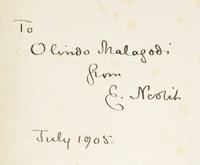 To
Olindo Malagodi
from
E. Nesbit
July 1905.